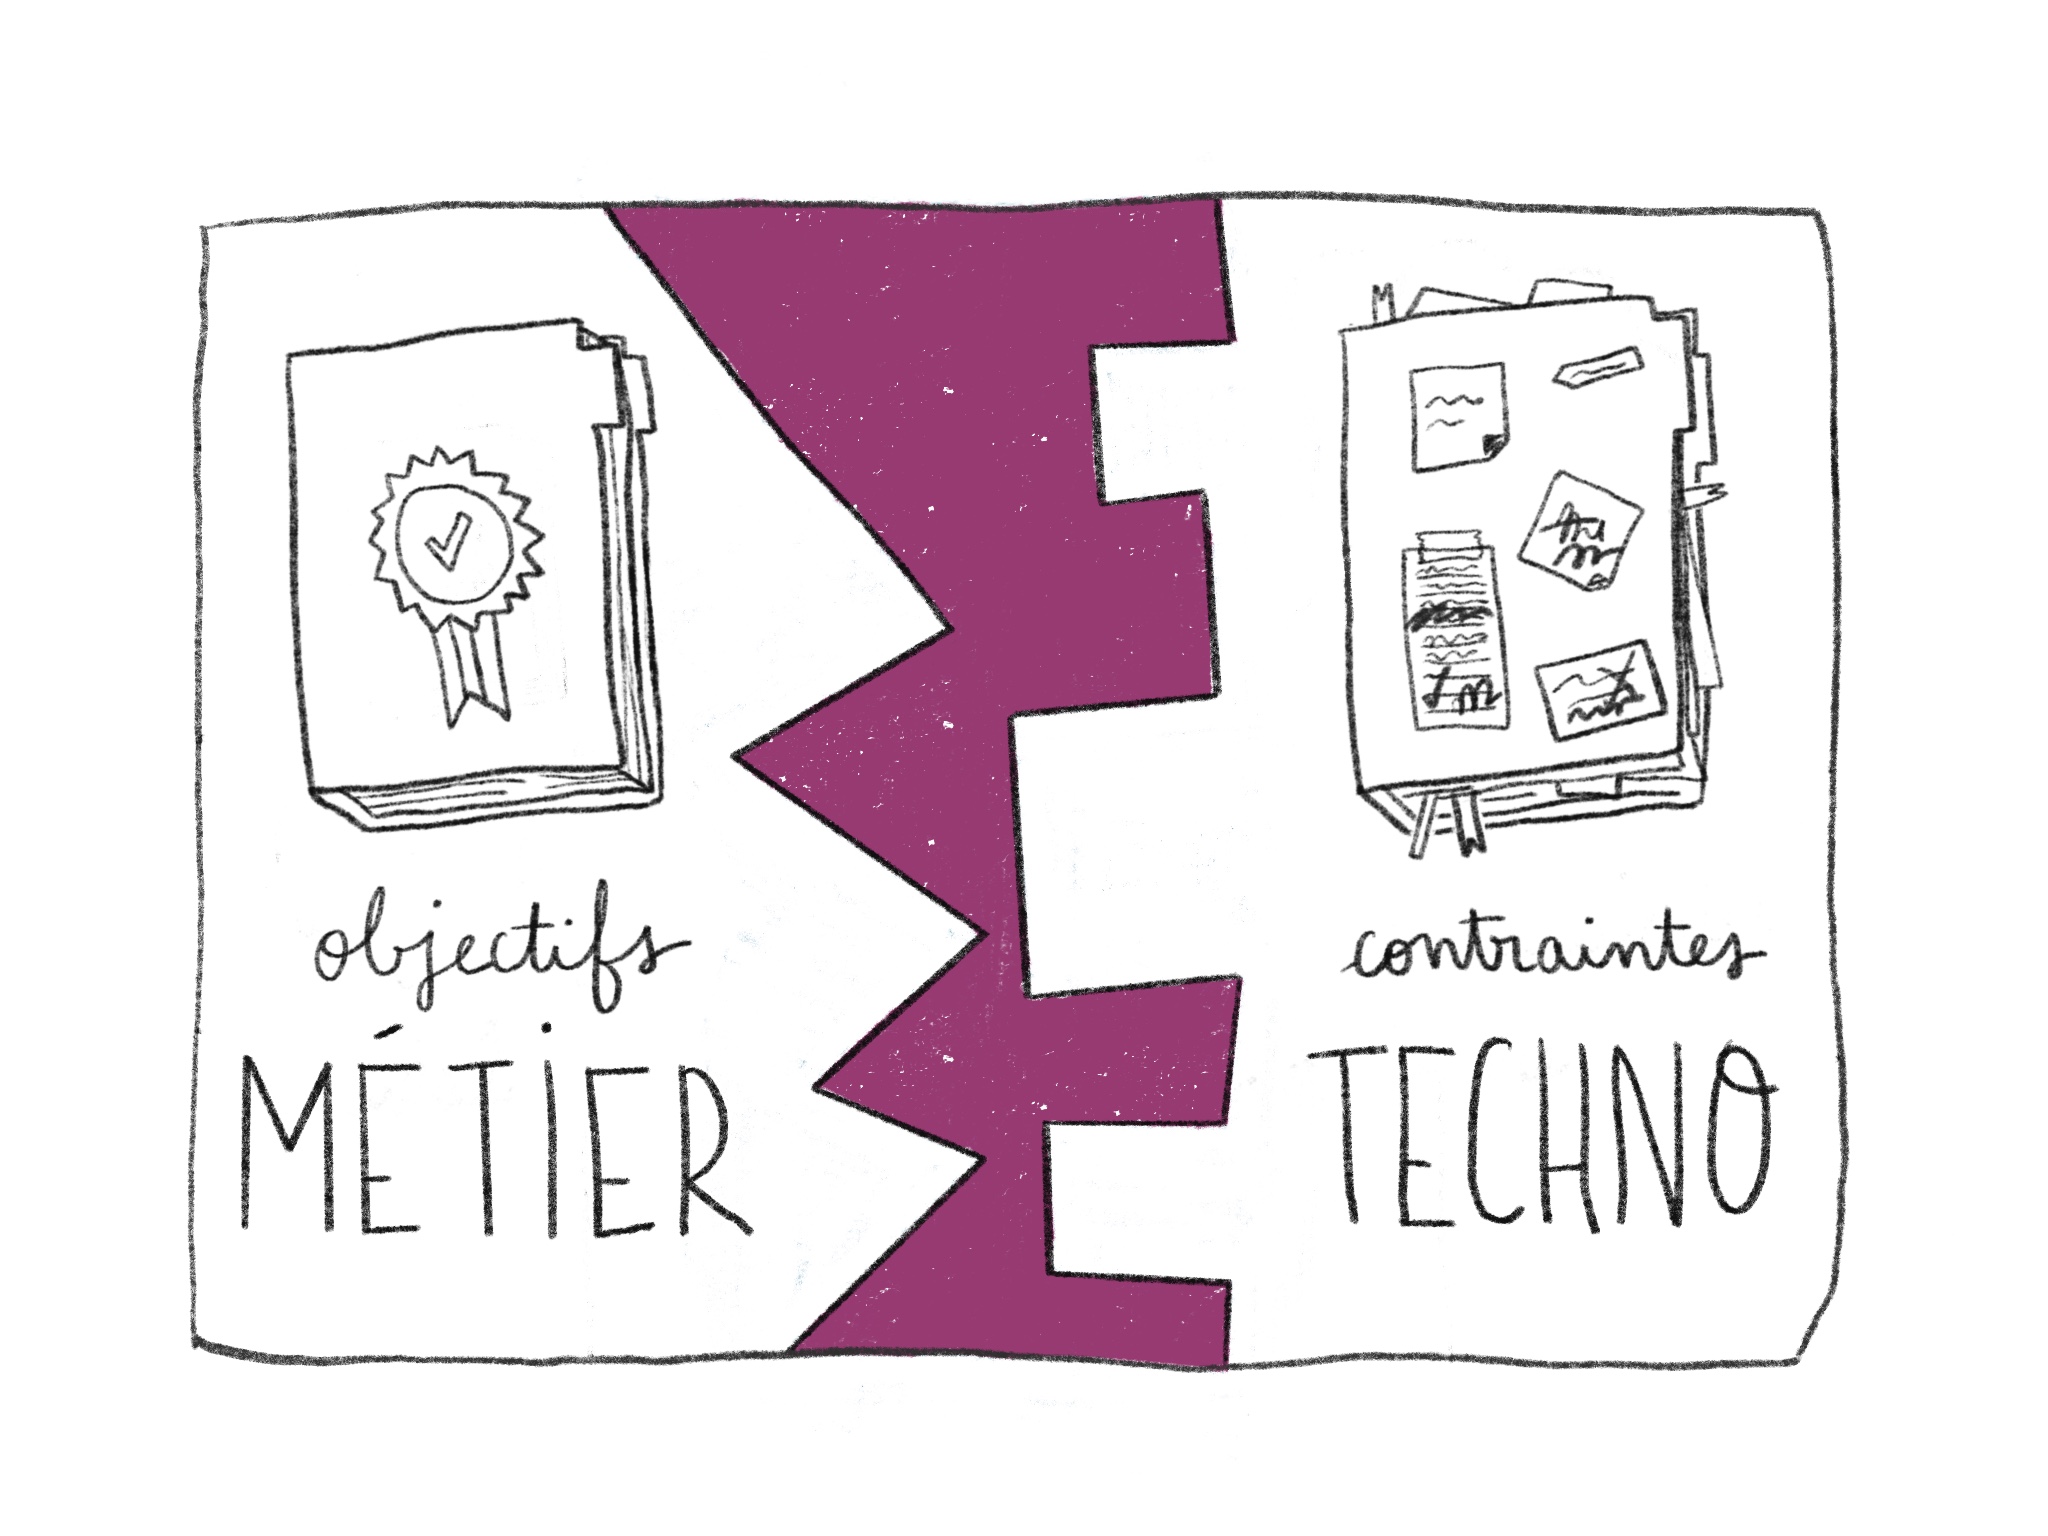 objectifs
MÉTiER
contraintes
TECHNO